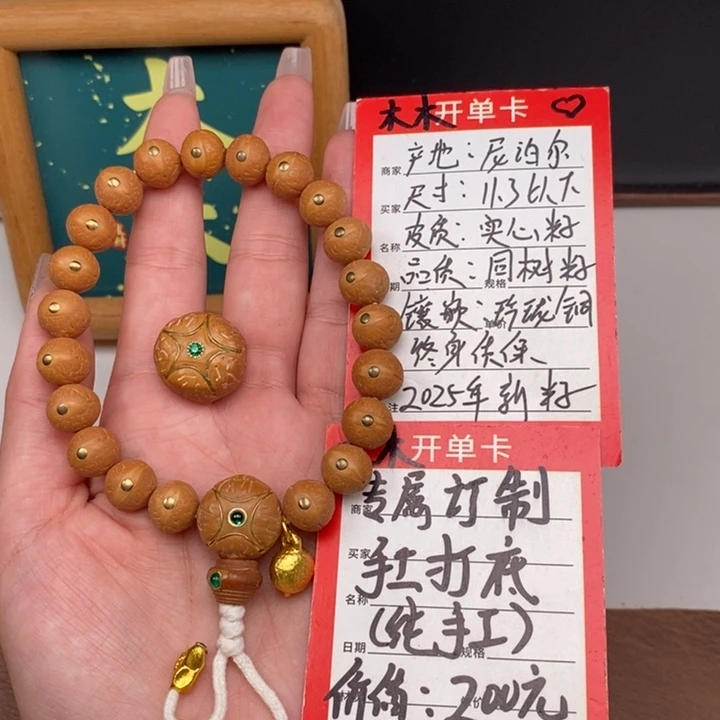 木木开单卡
商家 产地：尼泊尔
买家 尺寸：11.3以下
名称 皮质：实心籽
期 品质：同树籽 规格
镶嵌：玲珑铜
终身质保
注 2025年新籽
木开单卡
商家 专属订制
买家 手工打底
名称 (纯手工)
日期 规格
价值：200元